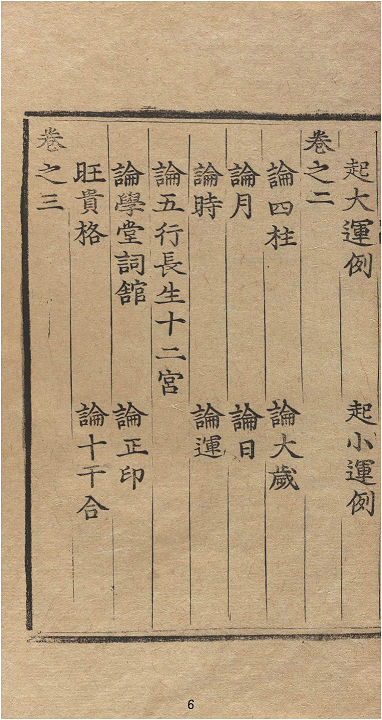 起大運例 起小運例
卷之二
論四柱 論大歲
論月 論日
論時 論運
論五行長生十二宮
論學堂詞舘 論正印
旺貴格 論十干合
卷之三
6